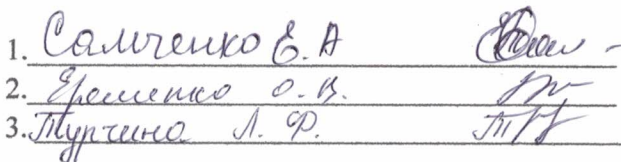 1. Самченко Е. А
2. Еременко О. В.
3. Турчина Л. Ф.